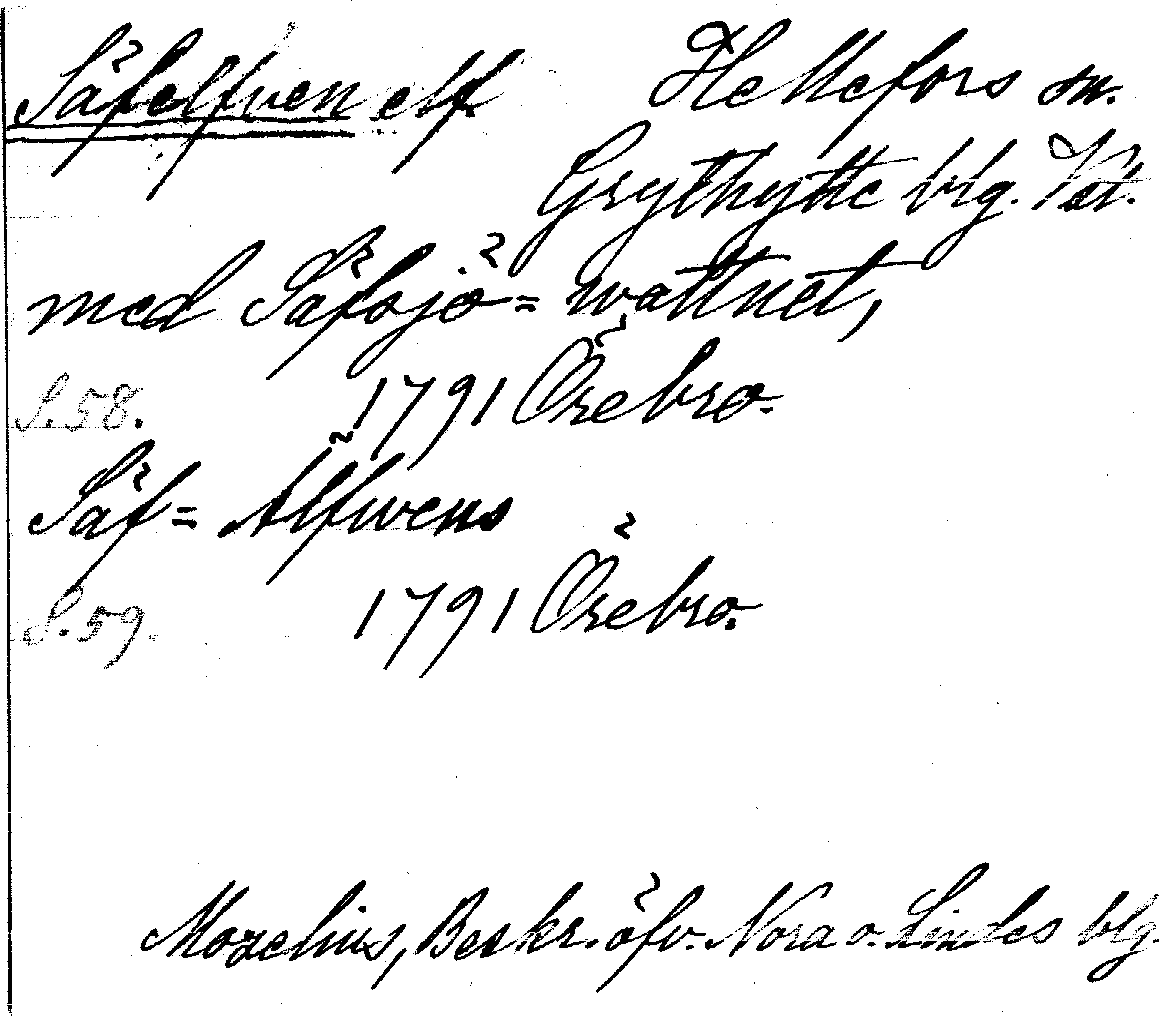 Säfelfven elf. Hellefors sn.
Grythytte blg. Vst.
med Säfsjö=wattnet,
S.58. 1791 Örebro.
Säf=Älfwens
S.59. 1791 Örebro.
Mozelius, Beskr. öfv. Nora o. Lindes blg.